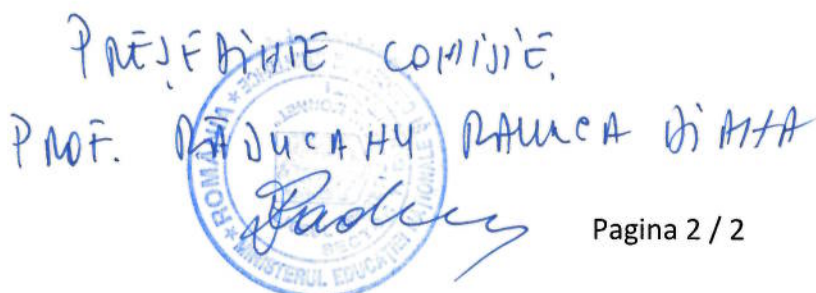 PREȘEDINTE COMISIE,
PROF. RĂDUCANU RALUCA DIANA
ROMÂNIA
MINISTERUL EDUCAȚIEI NAȚIONALE
Pagina 2 / 2